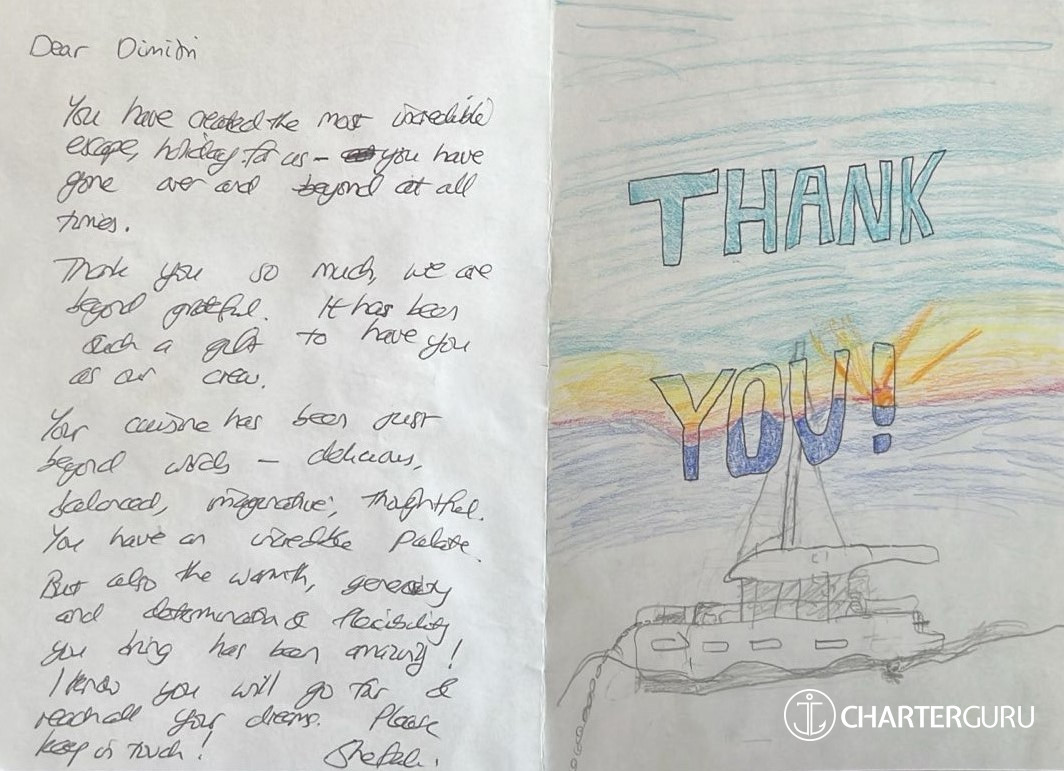 Dear Dimitri
You have created the most incredible
escape, holiday for us – you have
gone over and beyond at all
times.
Thank you so much, we are
beyond grateful. It has been
such a gift to have you
as our crew.
Your cuisine has been just
beyond words – delicious,
balanced, imaginative, thoughtful.
You have an incredible Palate.
But also the warmth, generosity
and determination & flexibility
you bring has been amazing!
I know you will go far &
reach all your dreams. Please
keep in touch!
THANK
YOU!
CHARTERGURU